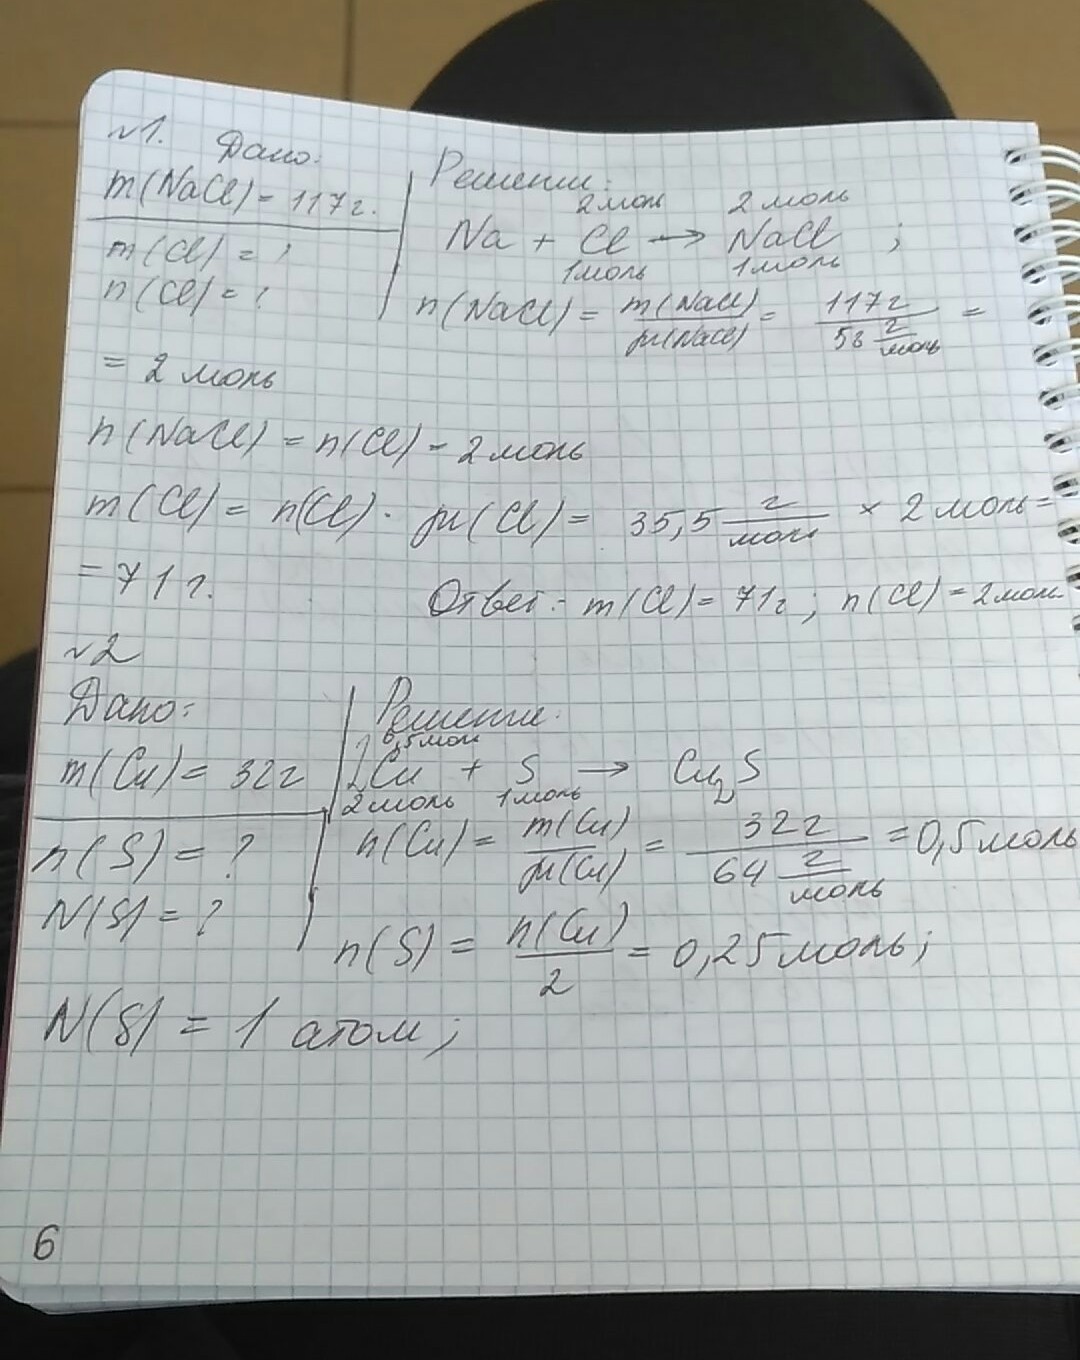 №1. Дано:
m(NaCl) = 117г.
m(Cl) = ?
n(Cl) = ?
Решение:
2 моль 2 моль
Na + Cl → NaCl ;
1 моль 1 моль
n(NaCl) = m(NaCl)/μ(NaCl) = 117г/58 г/моль =
= 2 моль
n(NaCl) = n(Cl) = 2 моль
m(Cl) = n(Cl) · μ(Cl) = 35,5 г/моль × 2 моль =
= 71г.
Ответ: m(Cl) = 71г ; n(Cl) = 2 моль
№2
Дано:
m(Cu) = 32г
n(S) = ?
N(S) = ?
Решение:
0,5 моль
2Cu + S → Cu₂S
2 моль 1 моль
n(Cu) = m(Cu)/μ(Cu) = 32г/64 г/моль = 0,5 моль
n(S) = n(Cu)/2 = 0,25 моль;
N(S) = 1 атом ;
6